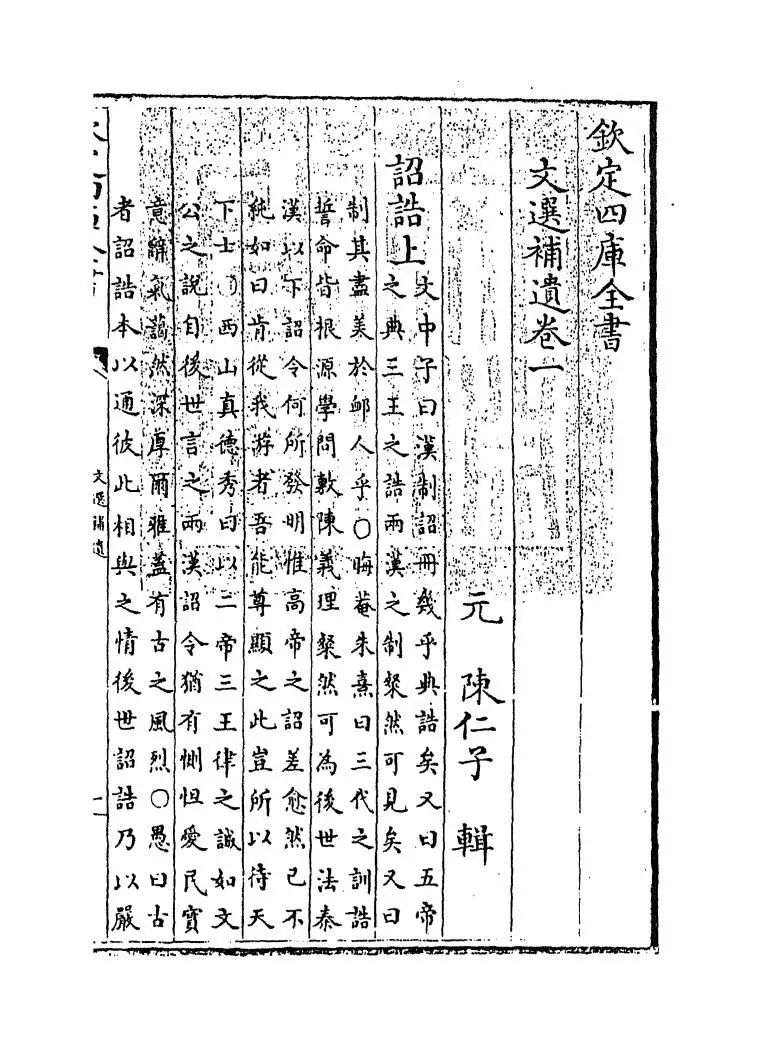 欽定四庫全書
文選補遺卷一
元 陳仁子 輯
詔誥上
文中子曰漢制詔冊幾乎典誥矣又曰五帝
之典三王之誥兩漢之制粲然可見矣又曰
制其盡美於䘏人乎○晦菴朱熹曰三代之訓誥
誓命皆根源學問敷陳義理粲然可為後世法秦
漢以下詔令何所發明惟高帝之詔差愈然已不
純如曰肯從我游者吾能尊顯之此豈所以待天
下士○西山真德秀曰以二帝三王律之誠如文
公之說自後世言之兩漢詔令猶有惻怛愛民實
意辭氣藹然深厚爾雅蓋有古之風烈○愚曰古
者詔誥本以通彼此相與之情後世詔誥乃以嚴
文選補遺